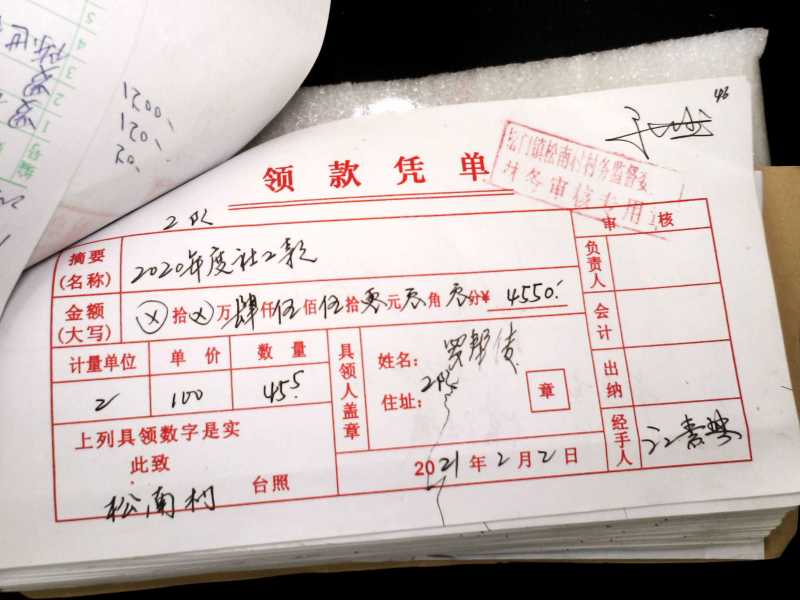 1200.
120.
20.
46
领款凭单
松门镇松南村村务监督委
财务审核专用章
2队
审核
摘要
(名称)
2020年度社工款
负责人
金额
(大写)
ⓧ拾ⓧ万肆仟伍佰伍拾零元零角零分¥ 4550.
会计
计量单位
单价
数量
工
100
45.5
具领人盖章
姓名:
住址:
2队
章
出纳
上列具领数字是实
此致
松南村 台照
2021年2月2日
经手人